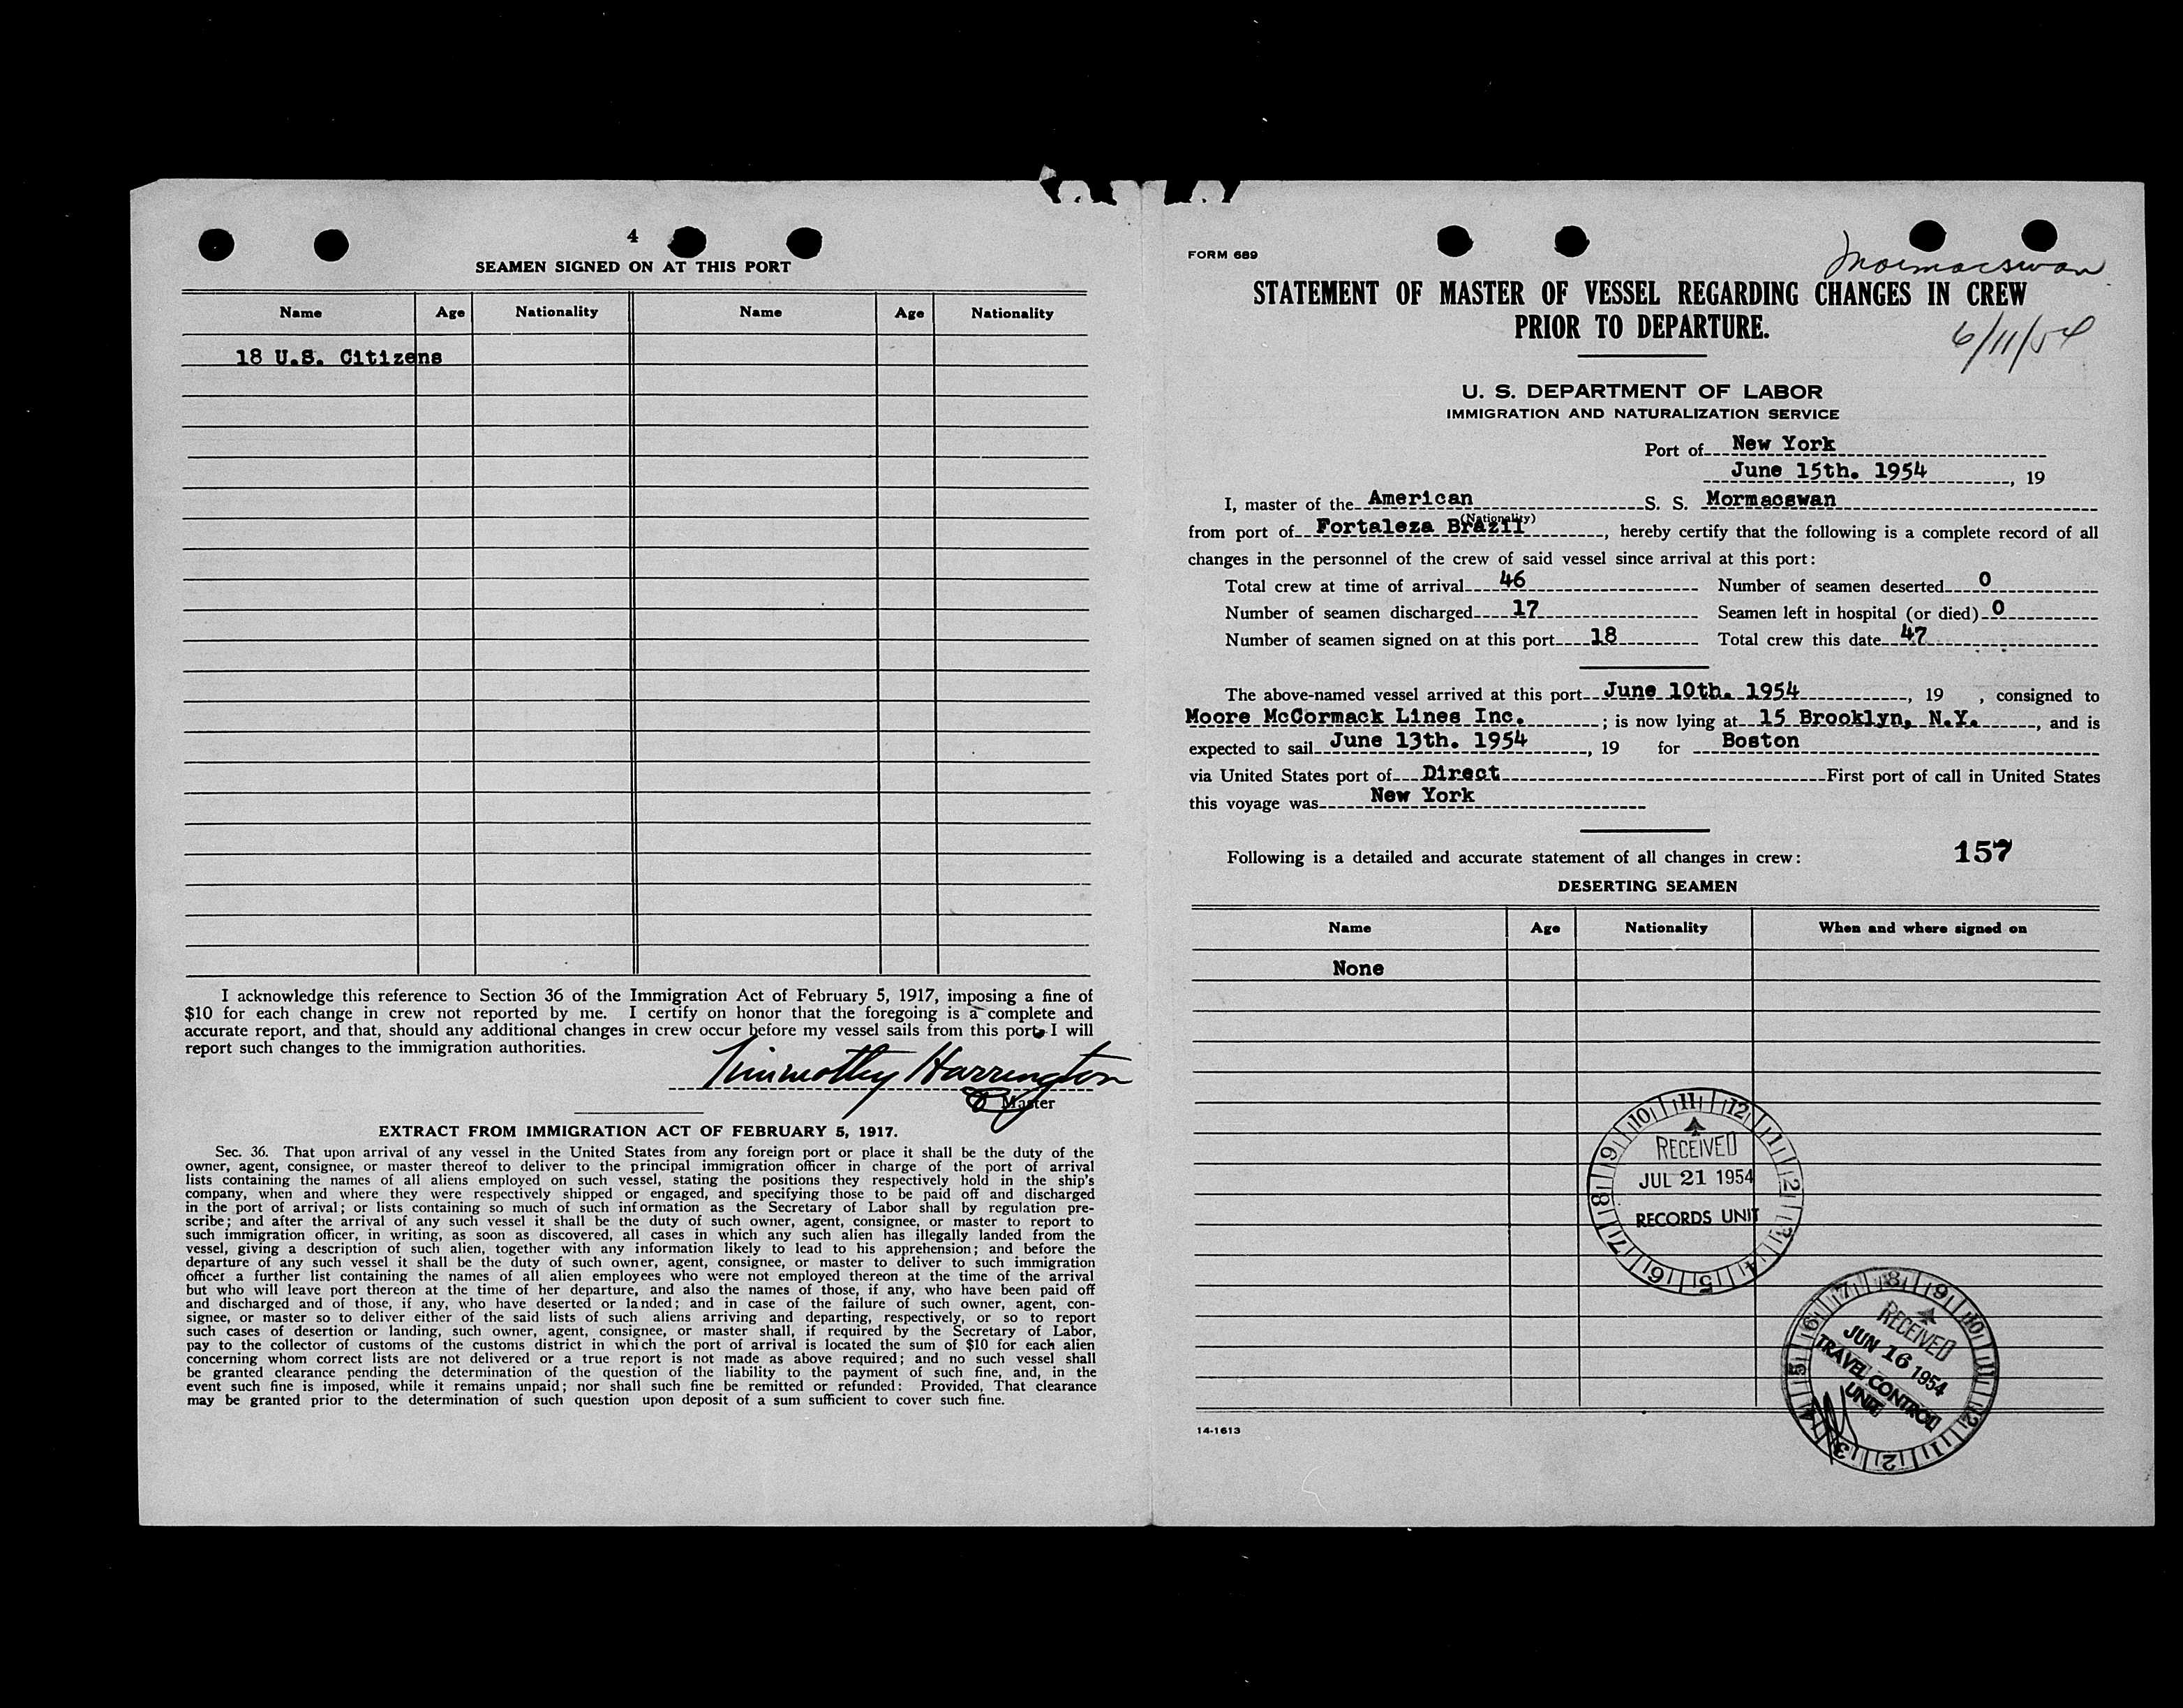 4
SEAMEN SIGNED ON AT THIS PORT
Name Age Nationality Name Age Nationality
18 U.S. Citizens
I acknowledge this reference to Section 36 of the Immigration Act of February 5, 1917, imposing a fine of
$10 for each change in crew not reported by me. I certify on honor that the foregoing is a complete and
accurate report, and that, should any additional changes in crew occur before my vessel sails from this port, I will
report such changes to the immigration authorities.
Timmothy Harrington
Master
EXTRACT FROM IMMIGRATION ACT OF FEBRUARY 5, 1917.
Sec. 36. That upon arrival of any vessel in the United States from any foreign port or place it shall be the duty of the
owner, agent, consignee, or master thereof to deliver to the principal immigration officer in charge of the port of arrival
lists containing the names of all aliens employed on such vessel, stating the positions they respectively hold in the ship's
company, when and where they were respectively shipped or engaged, and specifying those to be paid off and discharged
in the port of arrival; or lists containing so much of such information as the Secretary of Labor shall by regulation pre-
scribe; and after the arrival of any such vessel it shall be the duty of such owner, agent, consignee, or master to report to
such immigration officer, in writing, as soon as discovered, all cases in which any such alien has illegally landed from the
vessel, giving a description of such alien, together with any information likely to lead to his apprehension; and before the
departure of any such vessel it shall be the duty of such owner, agent, consignee, or master to deliver to such immigration
officer a further list containing the names of all alien employees who were not employed thereon at the time of the arrival
but who will leave port thereon at the time of her departure, and also the names of those, if any, who have been paid off
and discharged and of those, if any, who have deserted or landed; and in case of the failure of such owner, agent, con-
signee, or master so to deliver either of the said lists of such aliens arriving and departing, respectively, or so to report
such cases of desertion or landing, such owner, agent, consignee, or master shall, if required by the Secretary of Labor,
pay to the collector of customs of the customs district in which the port of arrival is located the sum of $10 for each alien
concerning whom correct lists are not delivered or a true report is not made as above required; and no such vessel shall
be granted clearance pending the determination of the question of the liability to the payment of such fine, and, in the
event such fine is imposed, while it remains unpaid; nor shall such fine be remitted or refunded: Provided, That clearance
may be granted prior to the determination of such question upon deposit of a sum sufficient to cover such fine.
FORM 689
Mormacswan
STATEMENT OF MASTER OF VESSEL REGARDING CHANGES IN CREW
PRIOR TO DEPARTURE.
6/11/54
U. S. DEPARTMENT OF LABOR
IMMIGRATION AND NATURALIZATION SERVICE
Port of New York
June 15th. 1954, 19
I, master of the American S. S. Mormacswan
(Nationality)
from port of Fortaleza Brazil, hereby certify that the following is a complete record of all
changes in the personnel of the crew of said vessel since arrival at this port:
Total crew at time of arrival 46 Number of seamen deserted 0
Number of seamen discharged 17 Seamen left in hospital (or died) 0
Number of seamen signed on at this port 18 Total crew this date 47
The above-named vessel arrived at this port June 10th. 1954, 19 , consigned to
Moore McCormack Lines Inc.; is now lying at 15 Brooklyn, N.Y., and is
expected to sail June 13th. 1954, 19 for Boston
via United States port of Direct First port of call in United States
this voyage was New York
Following is a detailed and accurate statement of all changes in crew: 157
DESERTING SEAMEN
Name Age Nationality When and where signed on
None
11 12 1 2 3 4 5 6 7 8 9 10
RECEIVED
JUL 21 1954
RECORDS UNIT
8 9 10 11 12 1 2 3 4 5 6 7
RECEIVED
JUN 16 1954
TRAVEL CONTROL
UNIT
14-1613